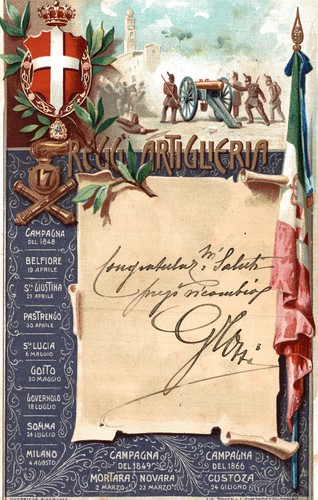 REGG. ARTIGLIERIA
17
CAMPAGNA
DEL 1848
BELFIORE
19 APRILE
Sta GIUSTINA
25 APRILE
PASTRENGO
30 APRILE
Sta LUCIA
6 MAGGIO
GOITO
30 MAGGIO
GOVERNOLO
18 LUGLIO
SOMMA
24 LUGLIO
MILANO
4 AGOSTO
CAMPAGNA
DEL 1849
MORTARA NOVARA
2 MARZO 23 MARZO
CAMPAGNA
DEL 1866
CUSTOZA
24 GIUGNO
Saluti
ricambio